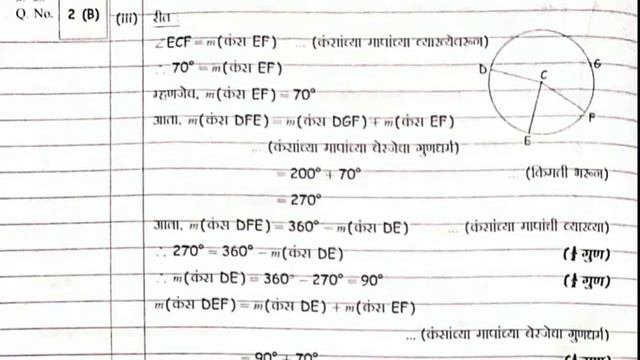 Q. No. 2 (B) (iii) रीत :
∠ECF = m(कंस EF) ... (कंसांच्या मापांच्या व्याख्येवरून)
∴ 70° = m(कंस EF)
म्हणजेच, m(कंस EF) = 70°
आता, m(कंस DFE) = m(कंस DGF) + m(कंस EF)
... (कंसांच्या मापांच्या बेरजेचा गुणधर्म)
= 200° + 70° ... (किमती भरून)
= 270°
आता, m(कंस DFE) = 360° - m(कंस DE) ... (कंसांच्या मापांची व्याख्या)
∴ 270° = 360° - m(कंस DE) (½ गुण)
∴ m(कंस DE) = 360° - 270° = 90° (½ गुण)
m(कंस DEF) = m(कंस DE) + m(कंस EF)
... (कंसांच्या मापांच्या बेरजेचा गुणधर्म)
= 90° + 70° (½ गुण)
D
G
C
F
E